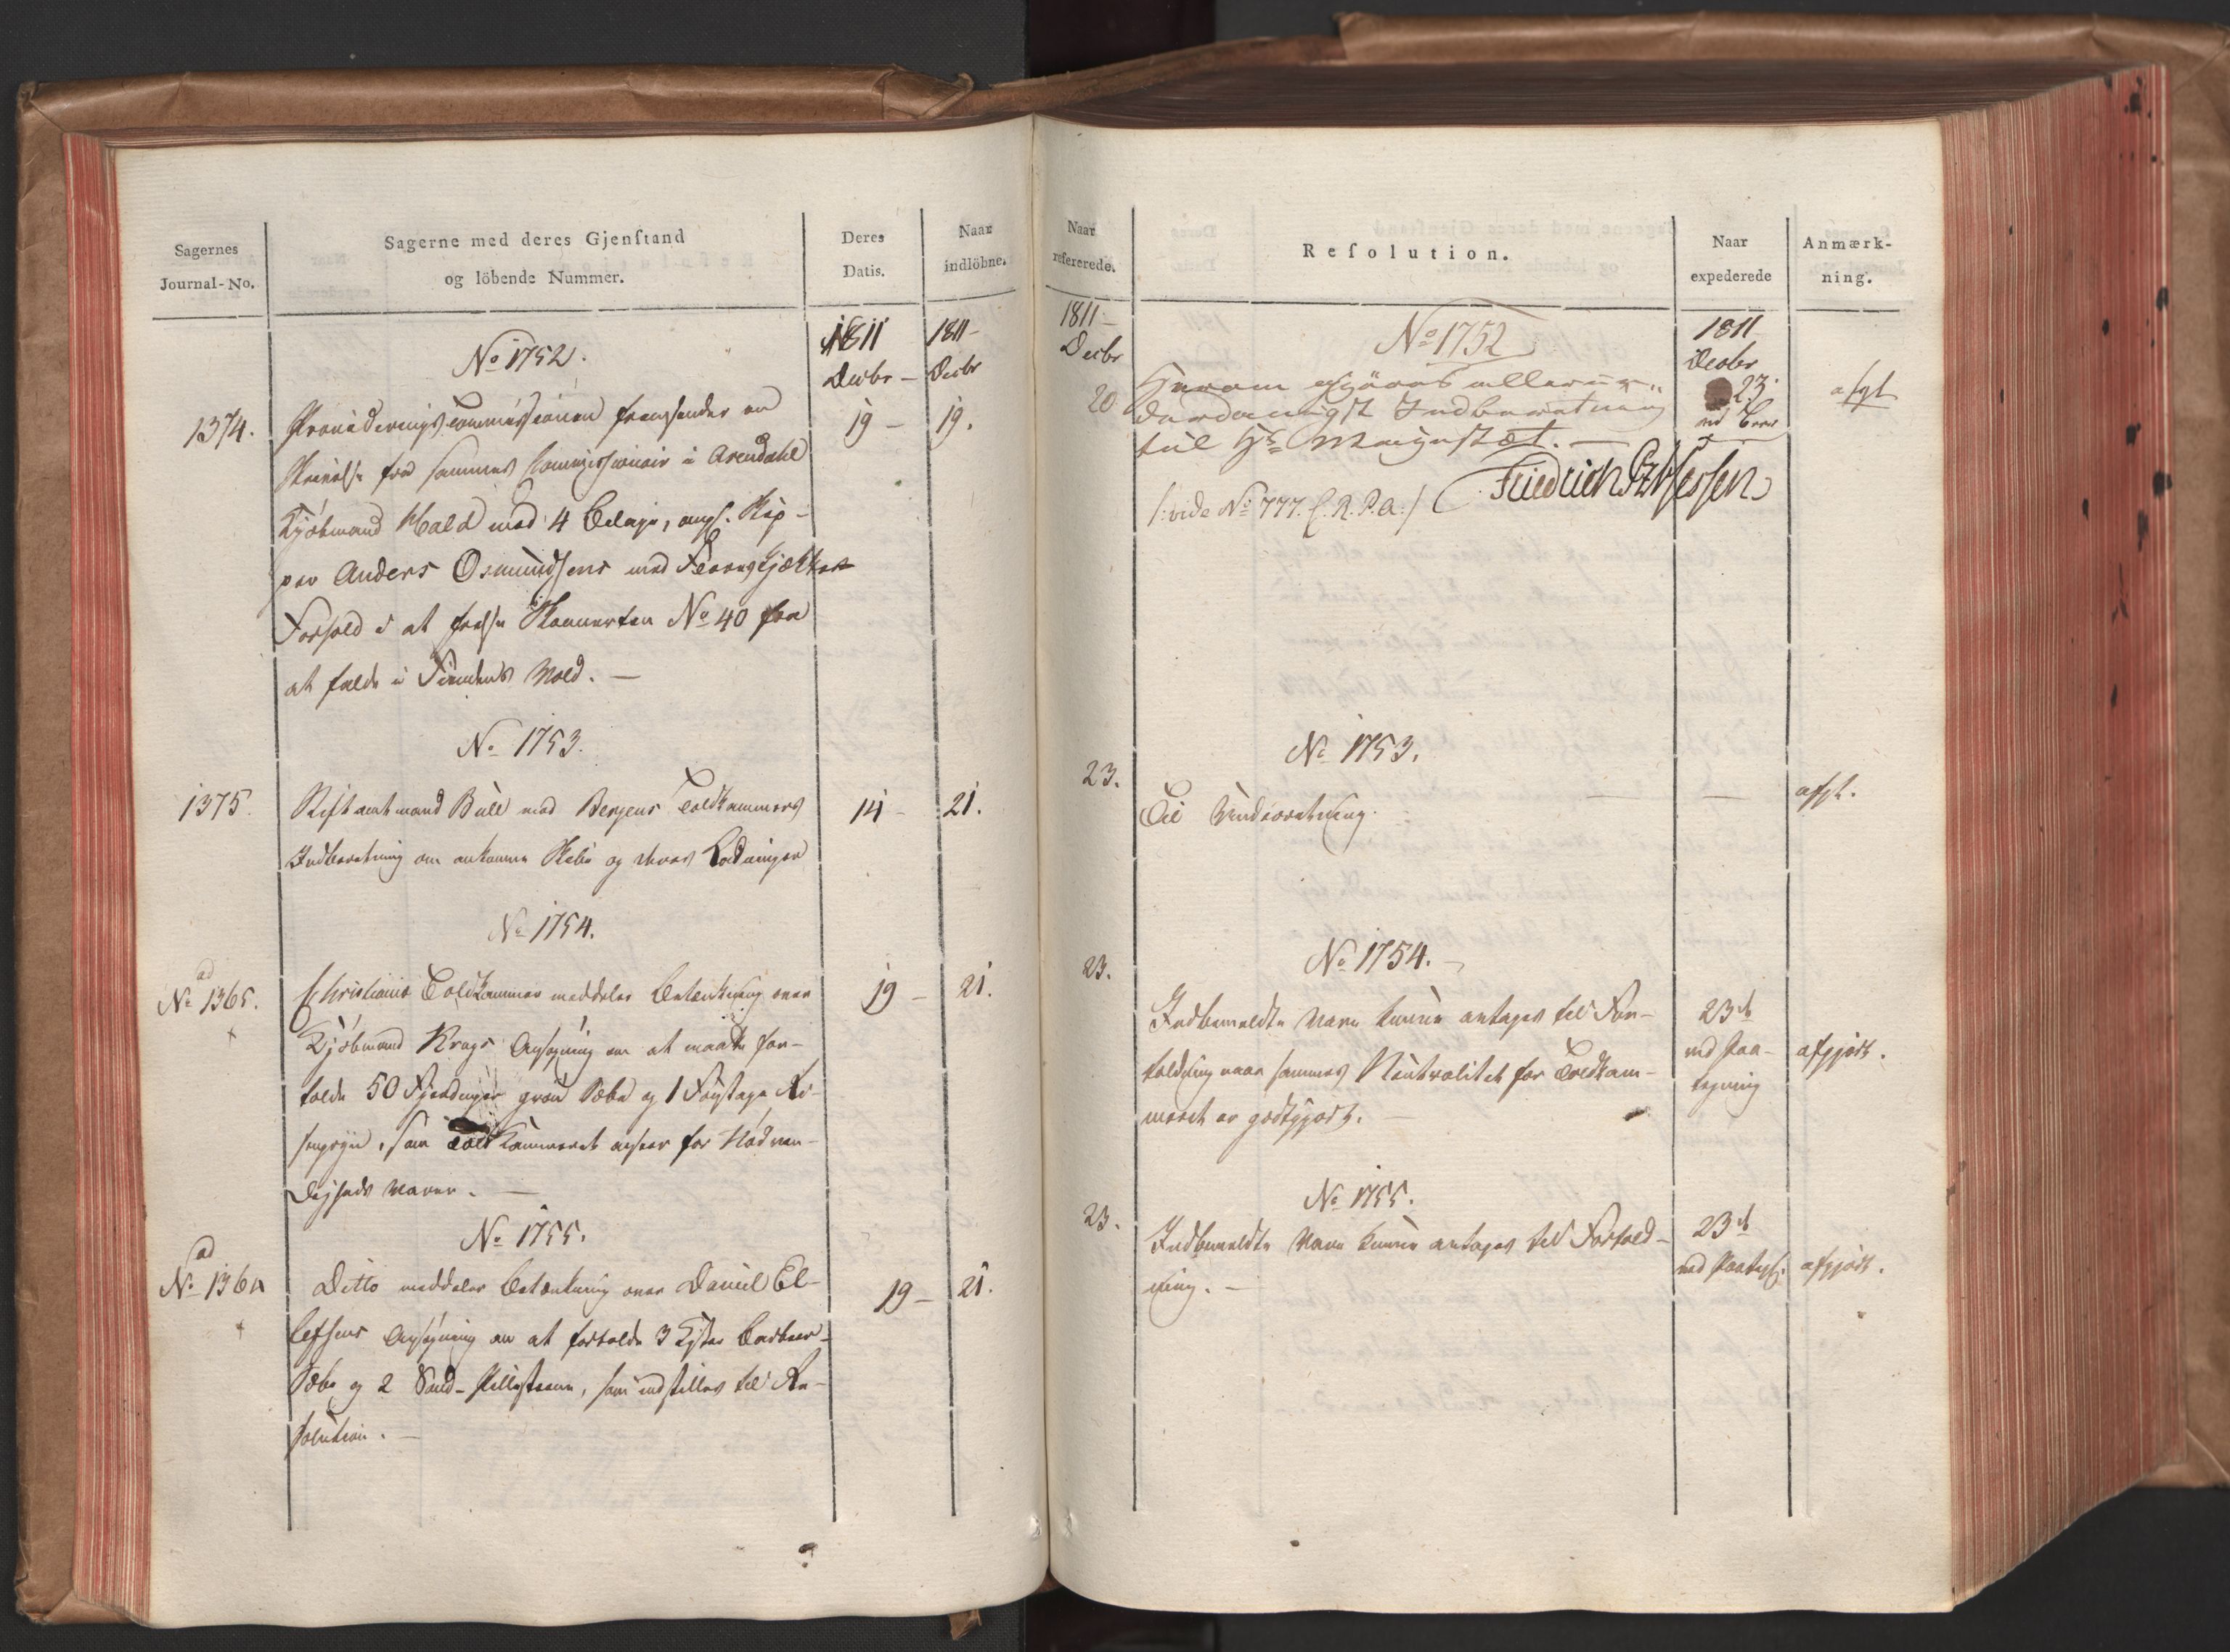 Sagernes
Journal-No.
Sagerne med deres Gjenſtand
og löbende Nummer.
Deres
Datis.
Naar
indlöbne.
1811
Decbr –
1811 –
Decbr
No 1752.
1374.
19 –
19.
Provideringscommissionen fremsender en
Skrivelse fra sammes Commissionair i Arendahl
Kjöbmand Hald med 4 Bilage, angl. Skip-
per Anders Osmundsens med Fleres
Forhold i at frelse Kanonerten No 40 fra
at falde i Fiendens Vold. –
No 1753.
1375.
14 –
21.
Stiftamtmand Bull med Bergens Toldkammers
Indberetning om ankomne Skibe og deres Ladninger
No 1754.
ad
No 1365.
19 –
21.
Christiania Toldkammer meddeler Betænkning over
Kjöbmand Krags Ansögning om at maatte for-
tolde 50 Fjerdinger grön Sæbe og 1 Fustage
som Toldkammeret anseer for Nödven-
digheds Varer. –
No 1755.
ad
No 1364
19 –
21.
Ditto meddeler Betænkning over Daniel El-
lefsens Ansögning om at fortolde 3 Kister Barbeer-
Sæbe og 2 som indstilles til Re-
solution. –
Naar
refererede.
Reſolution.
Naar
expederede
Anmærk-
ning.
1811 –
Decbr
20
No 1752
1811
Decbr
23
ved Brev
afgt
Herom gjöres allerun-
derdanigst Indberetning
til Hs Majestæt. –
Friedrich PzHessen
/: vide No 777. C. R. P. A. :/
No 1753.
23.
Til Underretning.
–
–
afgt.
No 1754. –
23.
Indbemeldte Vare kunne antages til For-
toldning naar sammes Neutralitet for Toldkam-
meret er godtgjort. –
23de
ved Paa-
tegning
afgjort.
No 1755.
23.
Indbemeldte Vare kunne antages til Fortold-
ning. –
23de
ved Paategn:
afgjort.